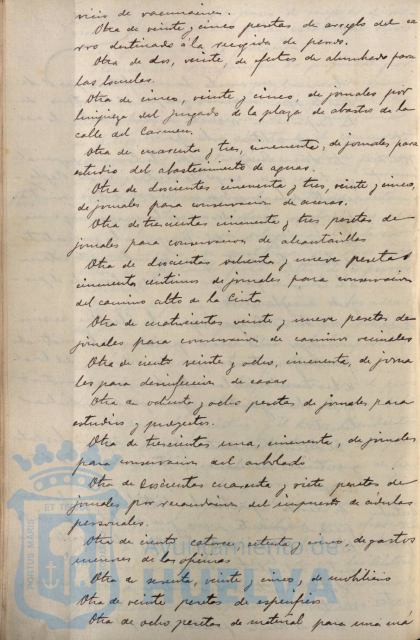 vicio de vacunacion.
Otra de veinte y cinco pesetas de arreglo del ca
rro destinado á la recogida de perros.
Otra de dos, veinte, de efectos de alumbrado para
las Escuelas.
Otra de cinco, veinte y cinco, de jornales por
limpieza del Juzgado de la plaza de abastos de la
calle del Carmen.
Otra de cuarenta y tres, cincuenta, de jornales para
estudio del abastecimiento de aguas.
Otra de doscientos cincuenta y tres, veinte y cinco,
de jornales para conservacion de aceras.
Otra de trescientas cincuenta y tres pesetas de
jornales para conservacion de alcantarillas
Otra de doscientas ochenta y nueve pesetas
cincuenta centimos de jornales para conservacion
del camino alto de la Cinta
Otra de cuatrocientas veinte y nueve pesetas de
jornales para conservacion de caminos vecinales
Otra de ciento veinte y ocho, cincuenta, de jorna
les para desinfeccion de casas
Otra de ochenta y ocho pesetas, de jornales para
estudios y proyectos.
Otra de trescientas una, cincuenta, de jornales
para conservacion del arbolado
Otra de doscientas cuarenta y siete pesetas de
jornales por recaudacion del impuesto de cédulas
personales.
Otra de ciento catorce, setenta y cinco, de gastos
menores de las oficinas
Otra de sesenta, veinte y cinco, de mobiliario
Otra de veinte pesetas de especificos
Otra de ocho pesetas de material para una má
PORTUS MARIS ET
Ayuntamiento de
HUELVA